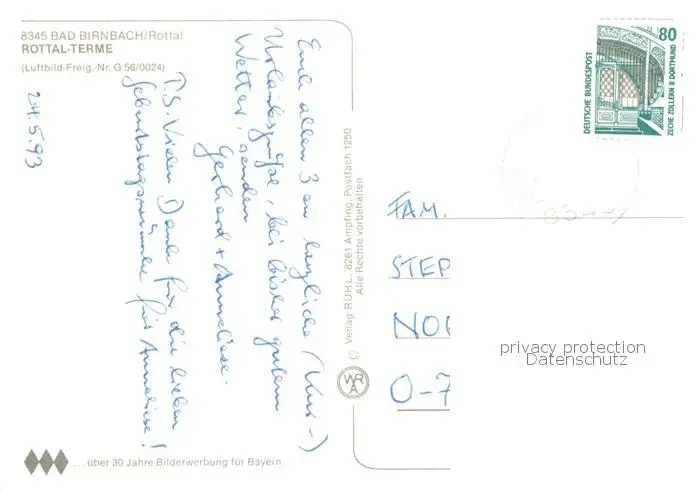 8345 BAD BIRNBACH/Rottal
ROTTAL-TERME
(Luftbild-Freig.-Nr. G 56/0024)
24.5.93
Euch allen 3 en herzliche (Kur-)
Urlaubsgrüße, bei bisher gutem
Wetter, senden
Gerhard + Anneliese.
P.S. Vielen Dank für die lieben
Geburtstagswünsche für Anneliese!
© Verlag RÜHL, 8261 Ampfing, Postfach 1250
Alle Rechte vorbehalten
WRA
... über 30 Jahre Bilderwerbung für Bayern
80
DEUTSCHE BUNDESPOST
ZECHE ZOLLERN II DORTMUND
FAM.
STEP
NO
O-7
privacy protection
Datenschutz